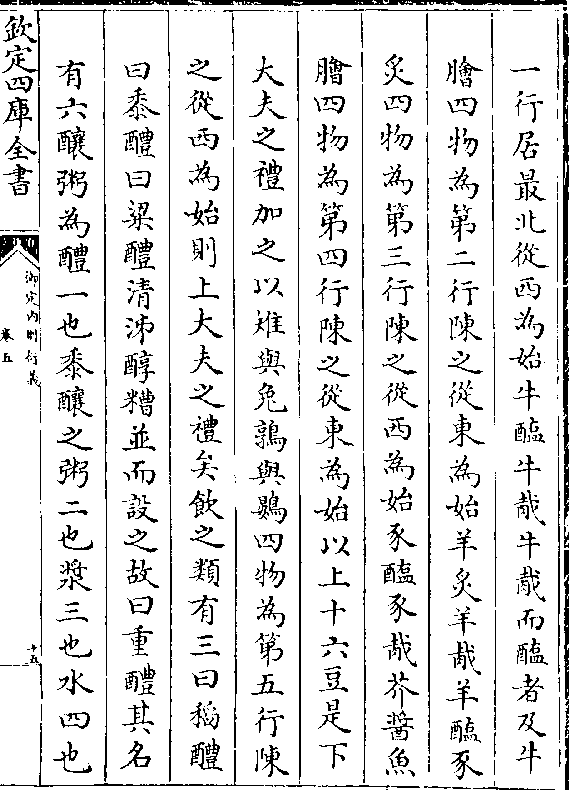 一行居最北從西為始牛醢牛胾牛胾而醢者及牛
膾四物為第二行陳之從東為始羊炙羊胾羊醢豕
炙四物為第三行陳之從西為始豕醢豕胾芥醬魚
膾四物為第四行陳之從東為始以上十六豆是下
大夫之禮加之以雉與兔鶉與鷃四物為第五行陳
之從西為始則上大夫之禮矣飲之類有三曰稻醴
曰黍醴曰粱醴清泲醇糟並而設之故曰重醴其名
有六釀粥為醴一也黍釀之粥二也漿三也水四也
欽定四庫全書
御定內則衍義
卷五
十五